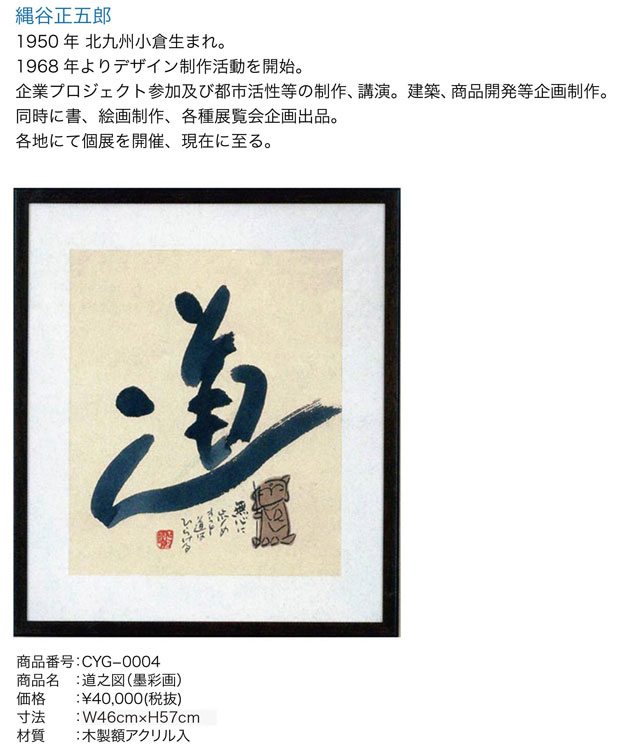 縄谷正五郎
1950年 北九州小倉生まれ。
1968年よりデザイン制作活動を開始。
企業プロジェクト参加及び都市活性等の制作、講演。建築、商品開発等企画制作。
同時に書、絵画制作、各種展覧会企画出品。
各地にて個展を開催、現在に至る。
道
無心に
歩め
道は
ひらける
商品番号：CYG-0004
商品名　：道之図（墨彩画）
価格　　：¥40,000(税抜)
寸法　　：W46cm×H57cm
材質　　：木製額アクリル入